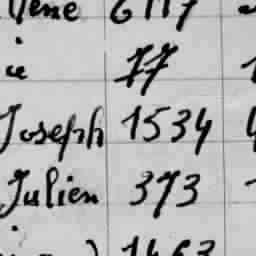 6117
77
Joseph 1534
Julien 373
1463